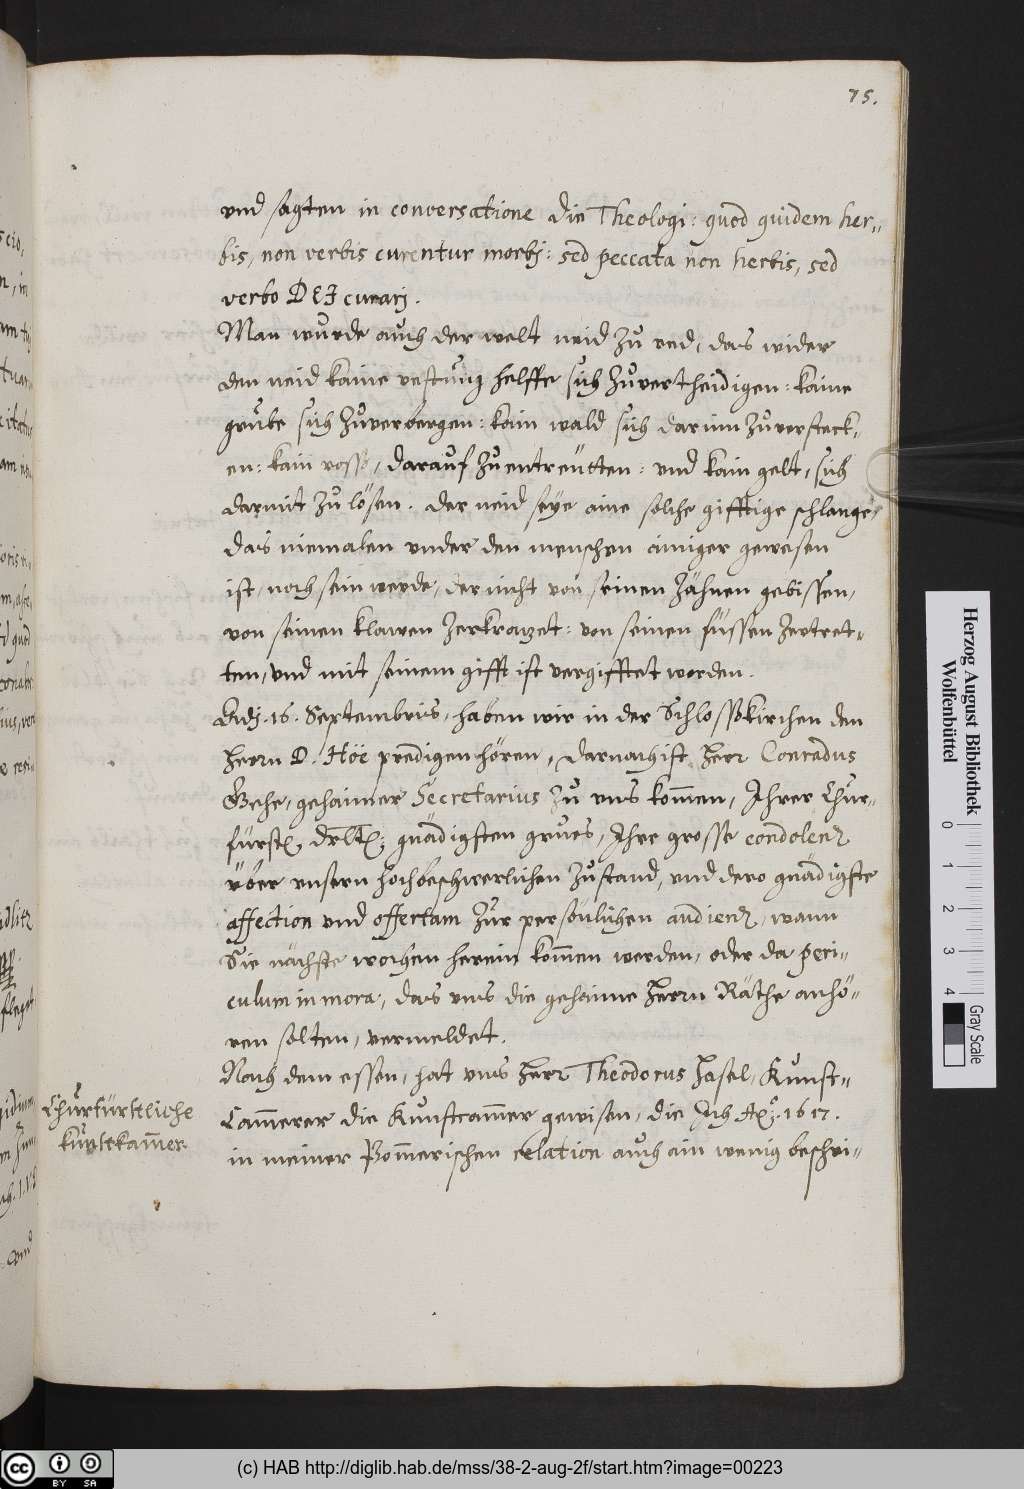 75.
vnd sagten in conversatione die Theologi: quod quidem her-
bis, non verbis curentur morbj: sed peccata non herbis, sed
verbo DEI curarj.
Man wurde auch der welt neid zu red, das wider
den neid kaine vestung helffe sich zuvertheidigen: kaine
grube sich zuverbergen: kain wald sich darinn zuversteck-
en: kain ross, darauf zu entreütten: vnd kain gelt, sich
darmit zu lösen. der neid seye aine solche gifftige schlange,
das niemalen vnder den menschen ainiger gewesen
ist, noch sein werde, der nicht von seinen zähnen gebissen,
von seinen klawen zerkrazet: von seinen füssen zertret-
ten, vnd mit seinem gifft ist vergifftet worden.
Adj. 16. Septembris, haben wir in der Schlosskirchen den
Herrn D. Höe predigen hören, darnach ist Herr Conradus
Gehe, gehaimer Secretarius zu vns kommen, Ihrer Chur-
fürstl. Drltl: gnädigsten grues, Ihre grosse condolenz
über vnsern hochbeschwerlichen zustand, vnd dero gnädigste
affection vnd offertam zur persönlichen audienz, wann
Sie nächste wochen herein kommen werden, oder da peri-
culum in mora, das vns die gehaime Herrn Räthe anhö-
ren solten, vermeldet.
Nach dem essen, hat vns Herr Theodorus Häsel, Kunst-
Cammerer die Kunstcammer gewisen, die Ich Aō. 1617.
in meiner Pommerischen relation auch ain wenig beschri-
Churfürstliche
kunstkammer.
Herzog August Bibliothek
Wolfenbüttel
0 1 2 3 4
Gray Scale
cc BY SA
(c) HAB http://diglib.hab.de/mss/38-2-aug-2f/start.htm?image=00223